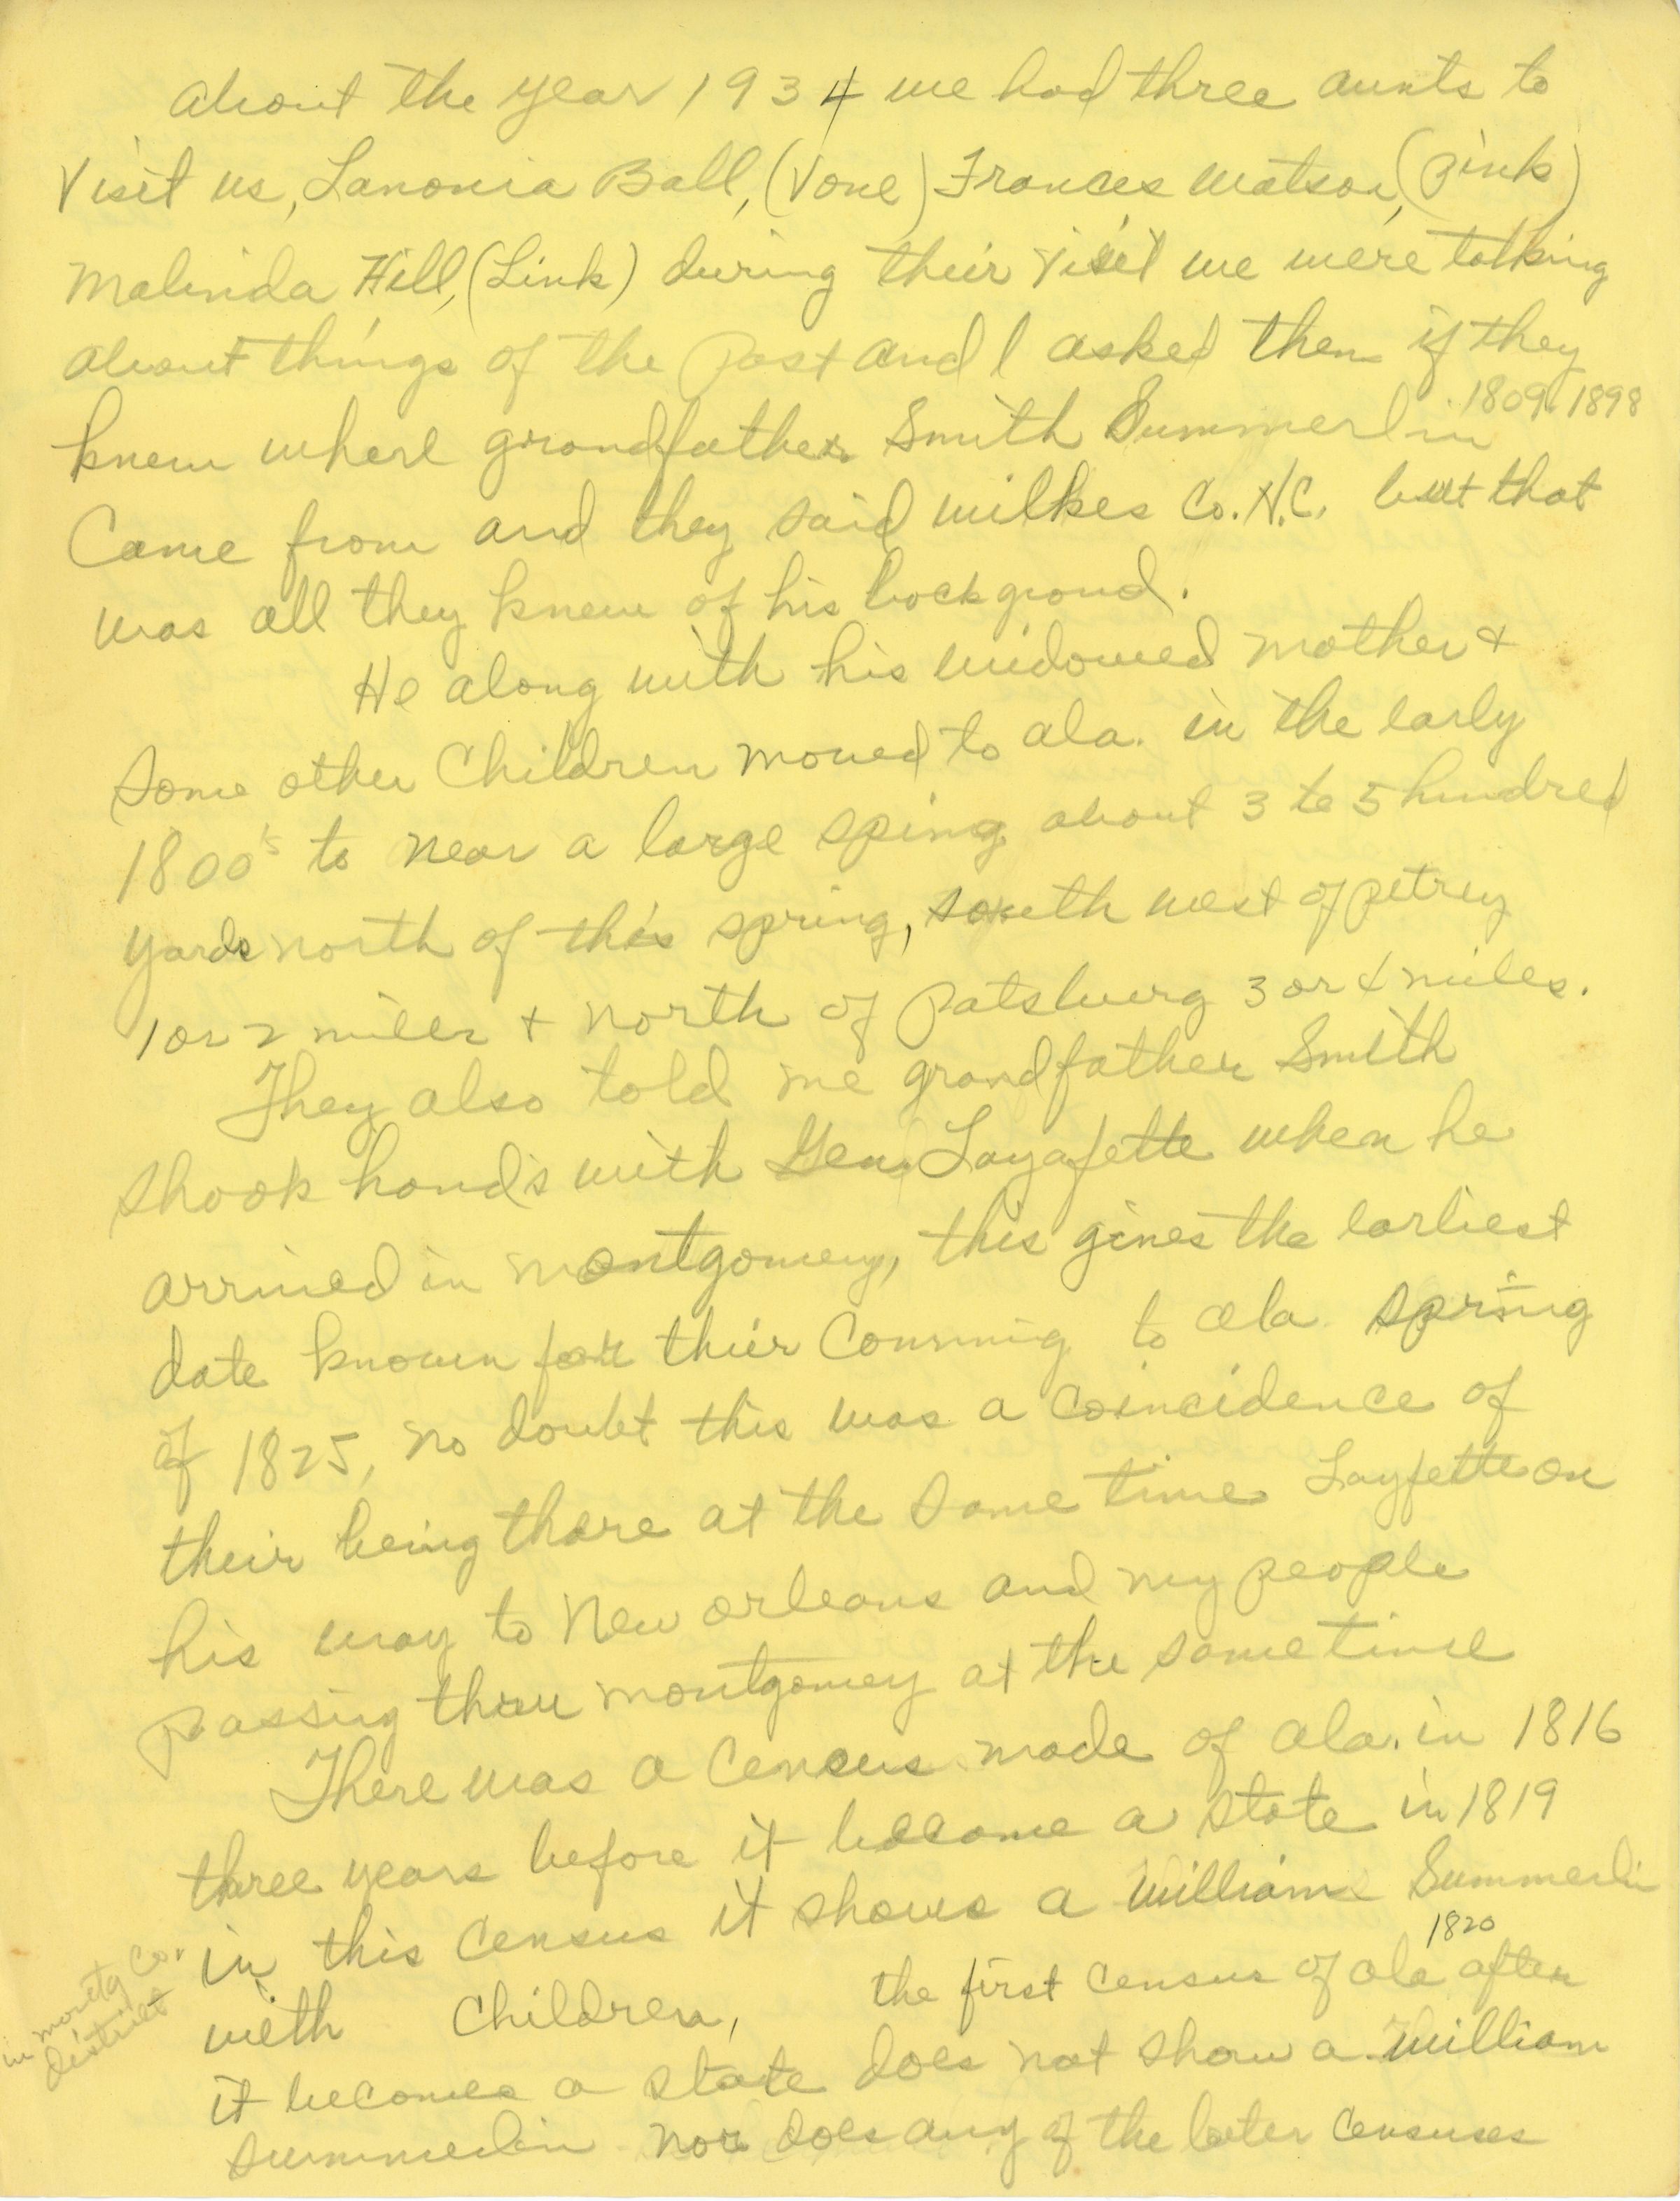 about the year 1934 we had three aunts to
Visit us, Lanonia Ball, (Vone) Frances Watson, (Pink)
Malinda Hill, (Link) during their visit we were talking
about things of the past and I asked them if they
knew where grandfather Smith Summerlin 1809 1898
Came from and they said wilkes Co. N.C. but that
was all they knew of his backgroud.
He along with his widowed mother +
some other Children moved to ala. in the early
1800's to near a large sping about 3 to 5 hundred
yards north of this spring, south west of petrey
1 or 2 miles + north of Patsburg 3 or 4 miles.
They also told me grandfather Smith
shook hands with Gen. Layafette when he
arrived in montgomery, this gives the earliest
date known for thier Comming to ala. spring
of 1825, no doubt this was a coincidence of
their being there at the same time Layfette on
his way to New orleans and my people
passing thru montgomery at the same time
There was a Census made of ala. in 1816
three years before it became a state in 1819
in this Census it shows a William Summerlin
in montg Co. district
with Children, the first census of ala 1820 after
it becomes a state does not show a William
summerlin nor does any of the later Censuses